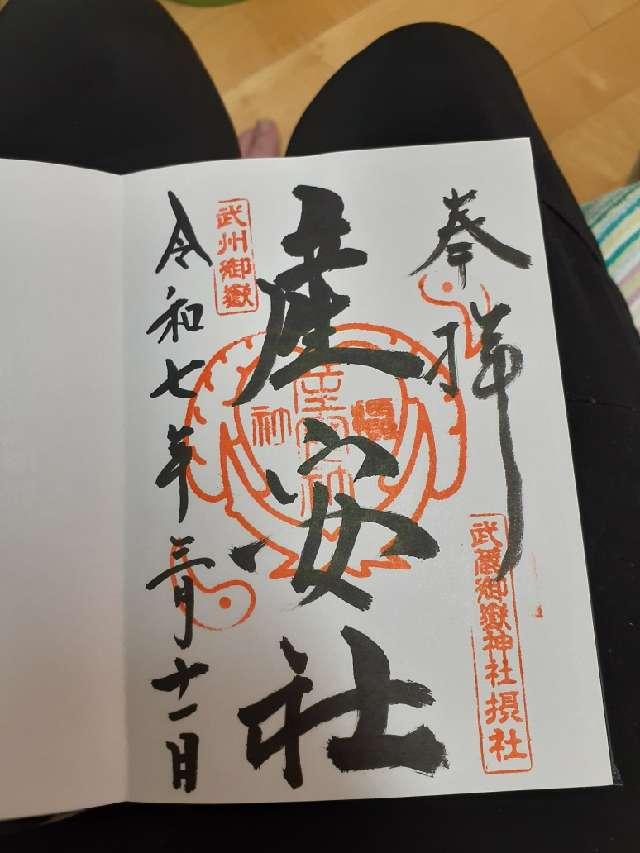 奉拝
武蔵御嶽神社摂社
産安社
武州御嶽
令和七年三月十一日